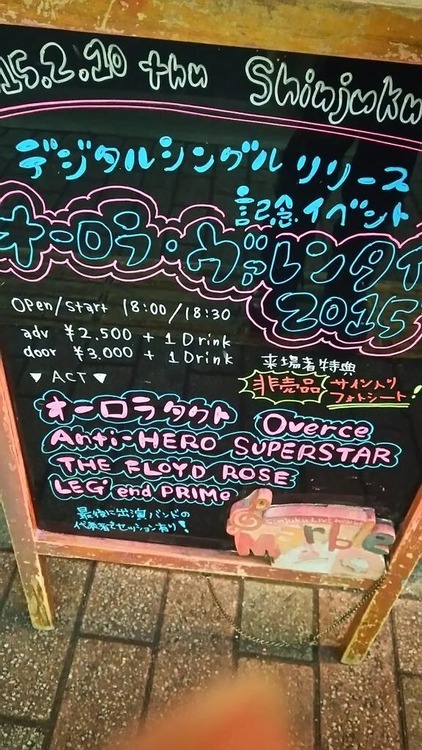 15.2.10 thu Shinjuku
デジタルシングル リリース
記念イベント
オーロラ・ヴァレンタイ
2015
open/start 18:00/18:30
adv ¥2,500 + 1 Drink
door ¥3,000 + 1 Drink
▼ ACT ▼
来場者特典
非売品 サイン入り
フォトシート!
オーロラタクト Overce
Anti-HERO SUPERSTAR
THE FLOYD ROSE
LEGi end PRIMe
最後に出演バンドの
代表者でセッション有り!
Marble